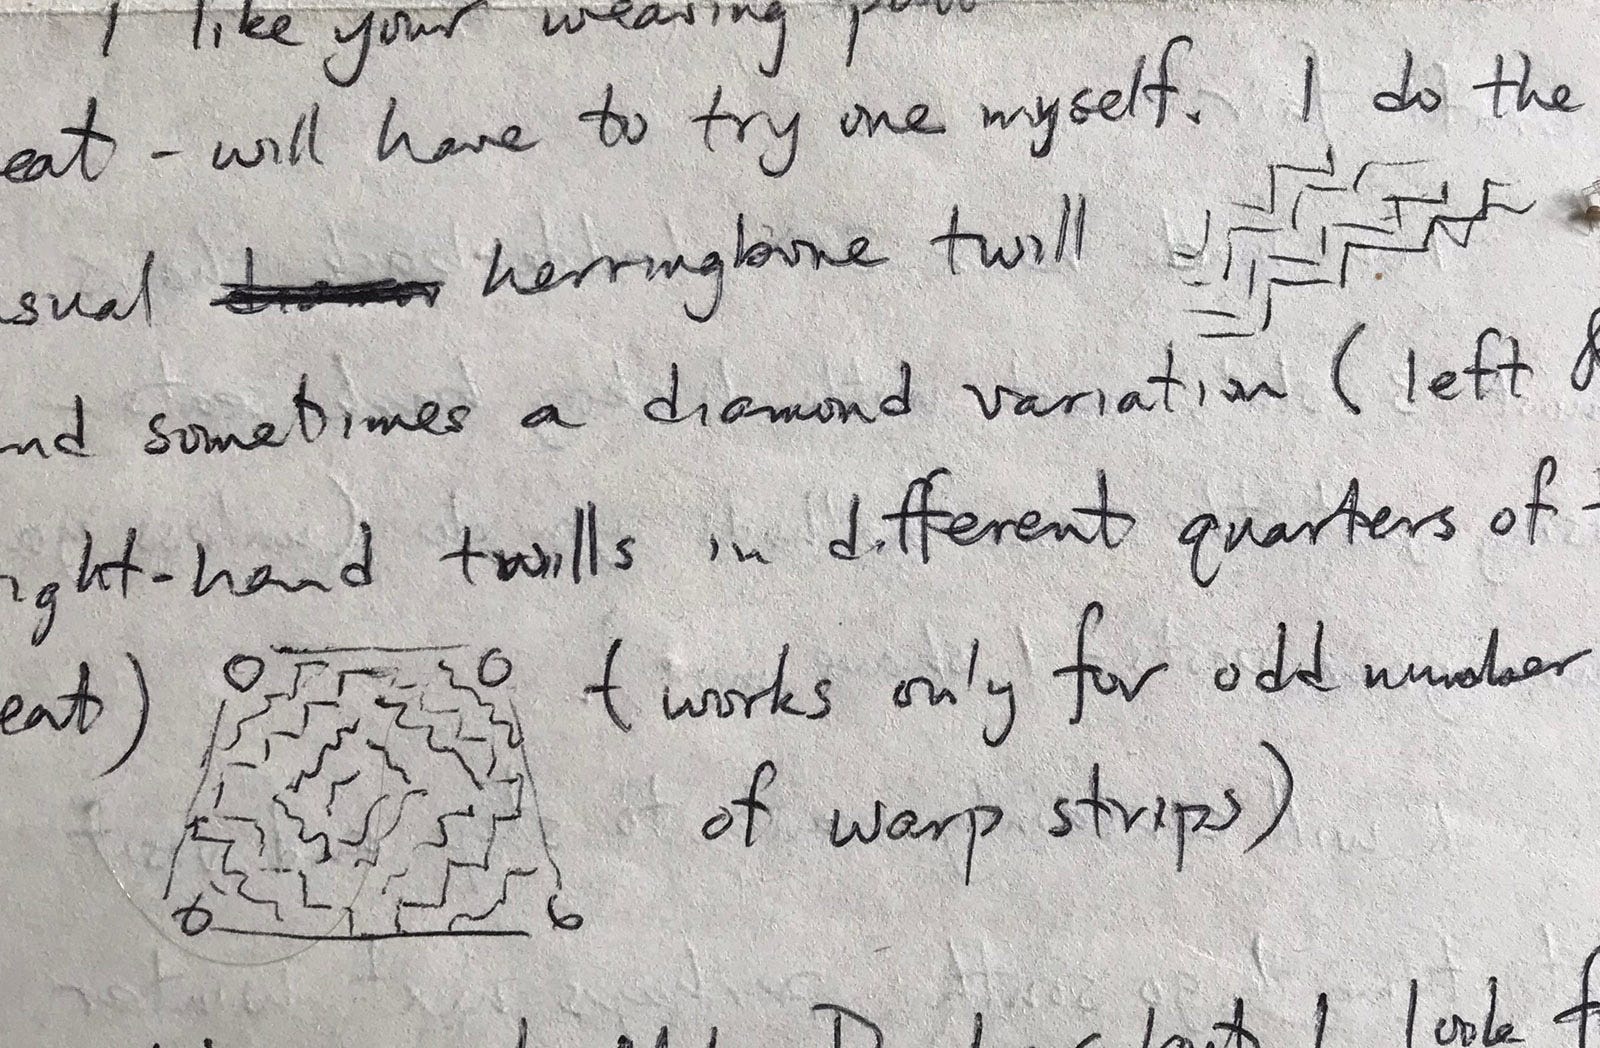 I like your weaving
eat - will have to try one myself. I do the
sual herringbone twill
nd sometimes a diamond variation (left &
ight-hand twills in different quarters of
eat) (works only for odd number
of warp strips)
but I look